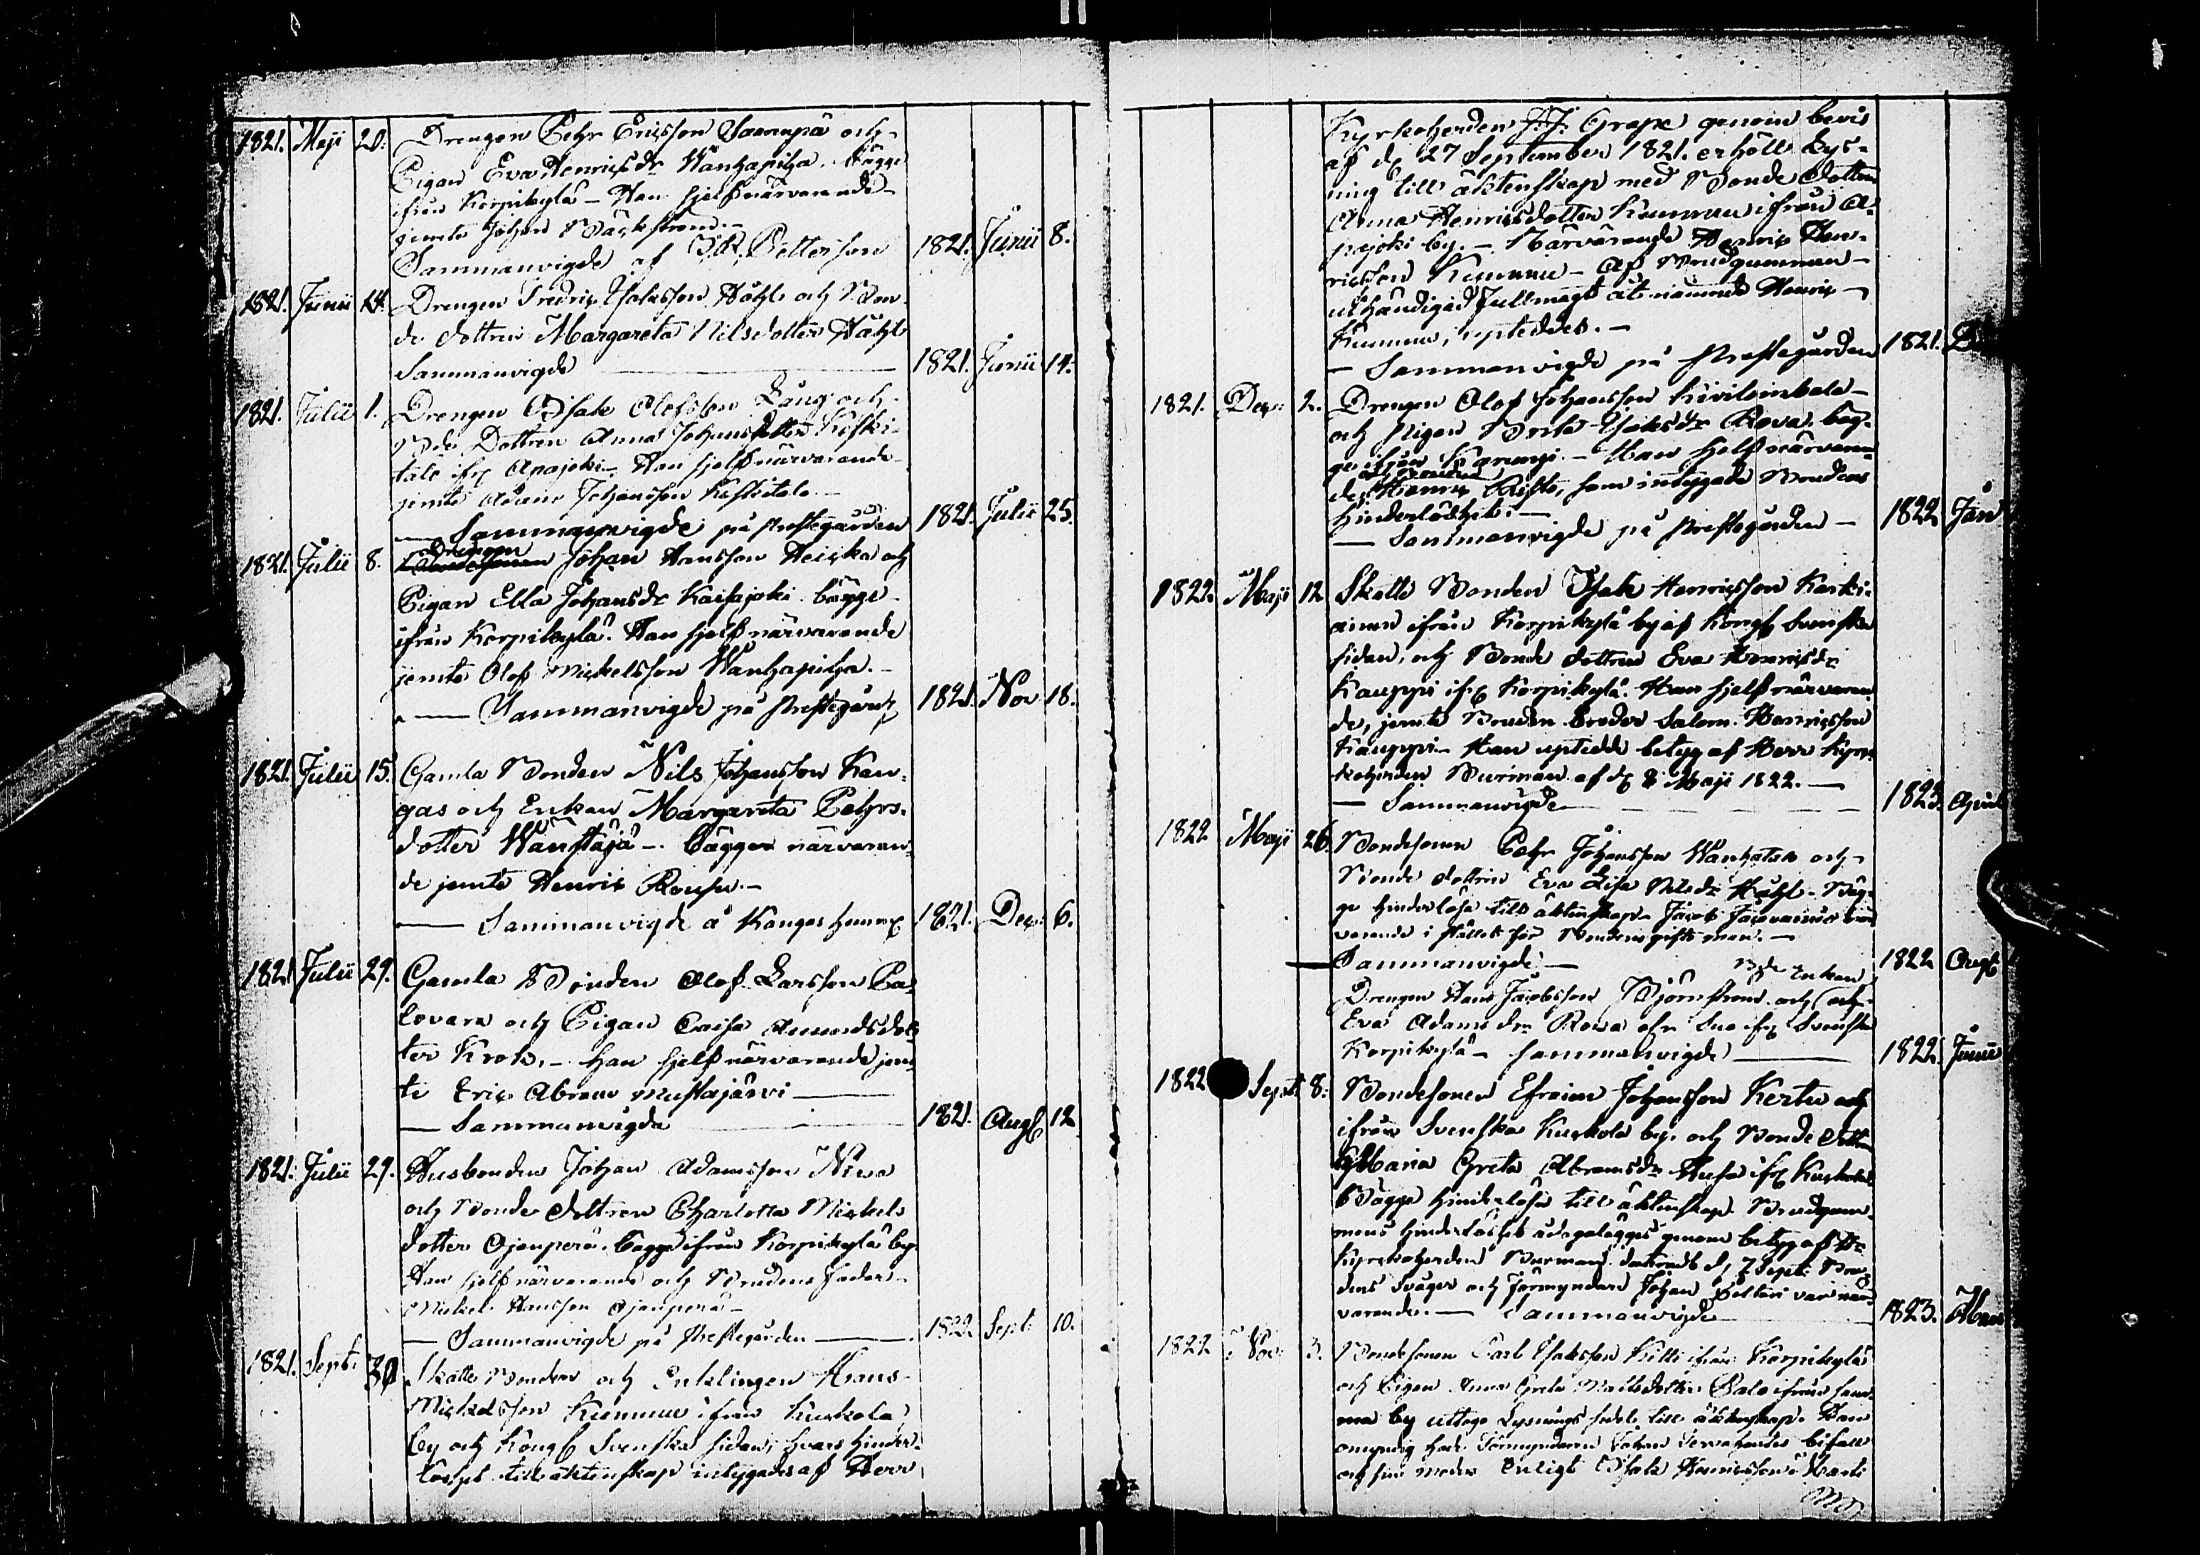 1821. Maji 20. Drengen Pehr Ericsson och
Pigan Eva Henricsdr Wanhapiha. bägge
ifrån Korpikylä – Han sjelf närvarande
jemte Johan Bäckström. –
Sammanvigde af Pettersson 1821. Junii 8.
1821. Junii 14. Drengen Fredric och Bon
de dottren Margareta Nilsdotter
Sammanvigde 1821. Junii 14.
1821. Julii 1. Drengen Isak Olofsson Lång och
Bde Dottren Anna Johansdotter Koski-
talo ifr Apajoki – Han sjelf närvarande
jemte Johansson Koskitalo –
— Sammanvigde på Prestegården 1821. Julii 25.
Drengen
1821. Julii 8. Johan Hansson Heicka och
Pigan Ella Johansdr Kaisajoki bägge
ifrån Korpikylä. Han sjelf närvarande
jemte Olof Mickelsson Wanhapiha. –
— Sammanvigde på Prestegård 1821. Nov 18.
1821. Julii 15. Gamla Bonden Nils Johansson Kan-
gas och Enkan Margareta Pehrs-
dotter – bägge närvaran-
de jemte Henric –
— Sammanvigde å Kangas hemm 1821. Dec: 6.
1821. Julii 29. Gamla Bonden Olof Larsson Pa-
lovara och Pigan Caisa Amundsdot
ter Krok. – han sjelf närvarande jem
te Eric Abram Mustajärvi —
— Sammanvigda 1821. Aug 12
1821. Julii 29. Husbonden Johan Adamsson Niva
och Bonde Dottren Charlotta Mickels
dotter Ojanperä. bägge ifrån Korpikylä by.
Han sjelf närvarande och Brudens Fader
Mickel Hansson Ojanperä –
— Sammanvigde på Prestegården — 1822 Sept: 10.
1821. Sept: 30 Skatte Bonden och Enklingen Hans
Mickelsson Kummu ifrån Kuckola
by och Kongl Svenska sidan, hvars hinder-
löshet till äktenskap intygades af Herr
Kyrkoherden J.J. Grape genom bevis
af d. 27 September 1821. erhöll Lys-
ning till äktenskap med Bonde Dottren
Anna Henricsdotter Kummu ifrån A-
pajoki by. – Närvarande Henric Hen-
ricsson Kummu – Af Brudgummen
uthändigad Fullmagt åt nämnde Henric –
Kummu, upteddes. –
– Sammanvigde på Prestegården 1821.
1821. Dec: 2. Drengen Olof Johansson Kiviloinkola
och Pigan Brita Isaksdr Rova. bäg-
ge ifrån Karungi. – Han sjelf närvaran
de Henric Risto, som intygade Brudens
hinderlöshet. –
— Sammanvigde på Prestegården – 1822 Jan
1822. Maji 12 Skatte Bonden Isak Henricsson Karki-
ainen ifrån Korpikylä by af Kongl Svenska
sidan, och Bonde dottren Eva Henricsdr
Kauppi ifr Korpikylä. Han sjelf närvaran
de, jemte Bruden broder Salom. Henricsson
Kauppi – Han uptedde betyg af Herr Kyr-
koherden Burman af d 8 Maji 1822. —
— Sammanvigde 1823. April
1822 Maji 26. Bondesonen Pehr Johansson Wanhatalo och
Bonde dottren Eva Lisa Nilsdr – Bäg-
ge hinderlösa till äktenskap – Jacob när
varande i stället för Brudens giftoman. –
Sammanvigde — 1822 Augt
Bde Enkan
Drengen Hans Jacobsson Björnström och
Eva Adamsdr Rova ifr Svenska
Korpikylä – Sammanvigde — 1822. Junii
1822 Sept 8. Bondesonen Efraim Johansson Kerttu
ifrån Svenska Kuckola by. och Bonde Dott
Maria Greta Abramsdr Husa ifr Kuckola
Bägge hinderlösa till äktenskap. Brudgum-
mens hinderlöshet ådagalagges genom betyg af Hr
Kyrkoherden Burman daterad d 7 Sept: Bru-
dens Svåger och Förmyndare Johan var när
varande. — Sammanvigde 1823. Mars
1822 Nov: 3. Bondesonen Carl Isaksson Kitti ifrån Korpikylä
och Pigan Anna Greta Matsdotter Palo ifrån sam
ma by uttogo Lysnings sedel till äktenskap. Han
omyndig hade Förmyndaren Johan bifall
och sin moder enligt Isak Henricsson